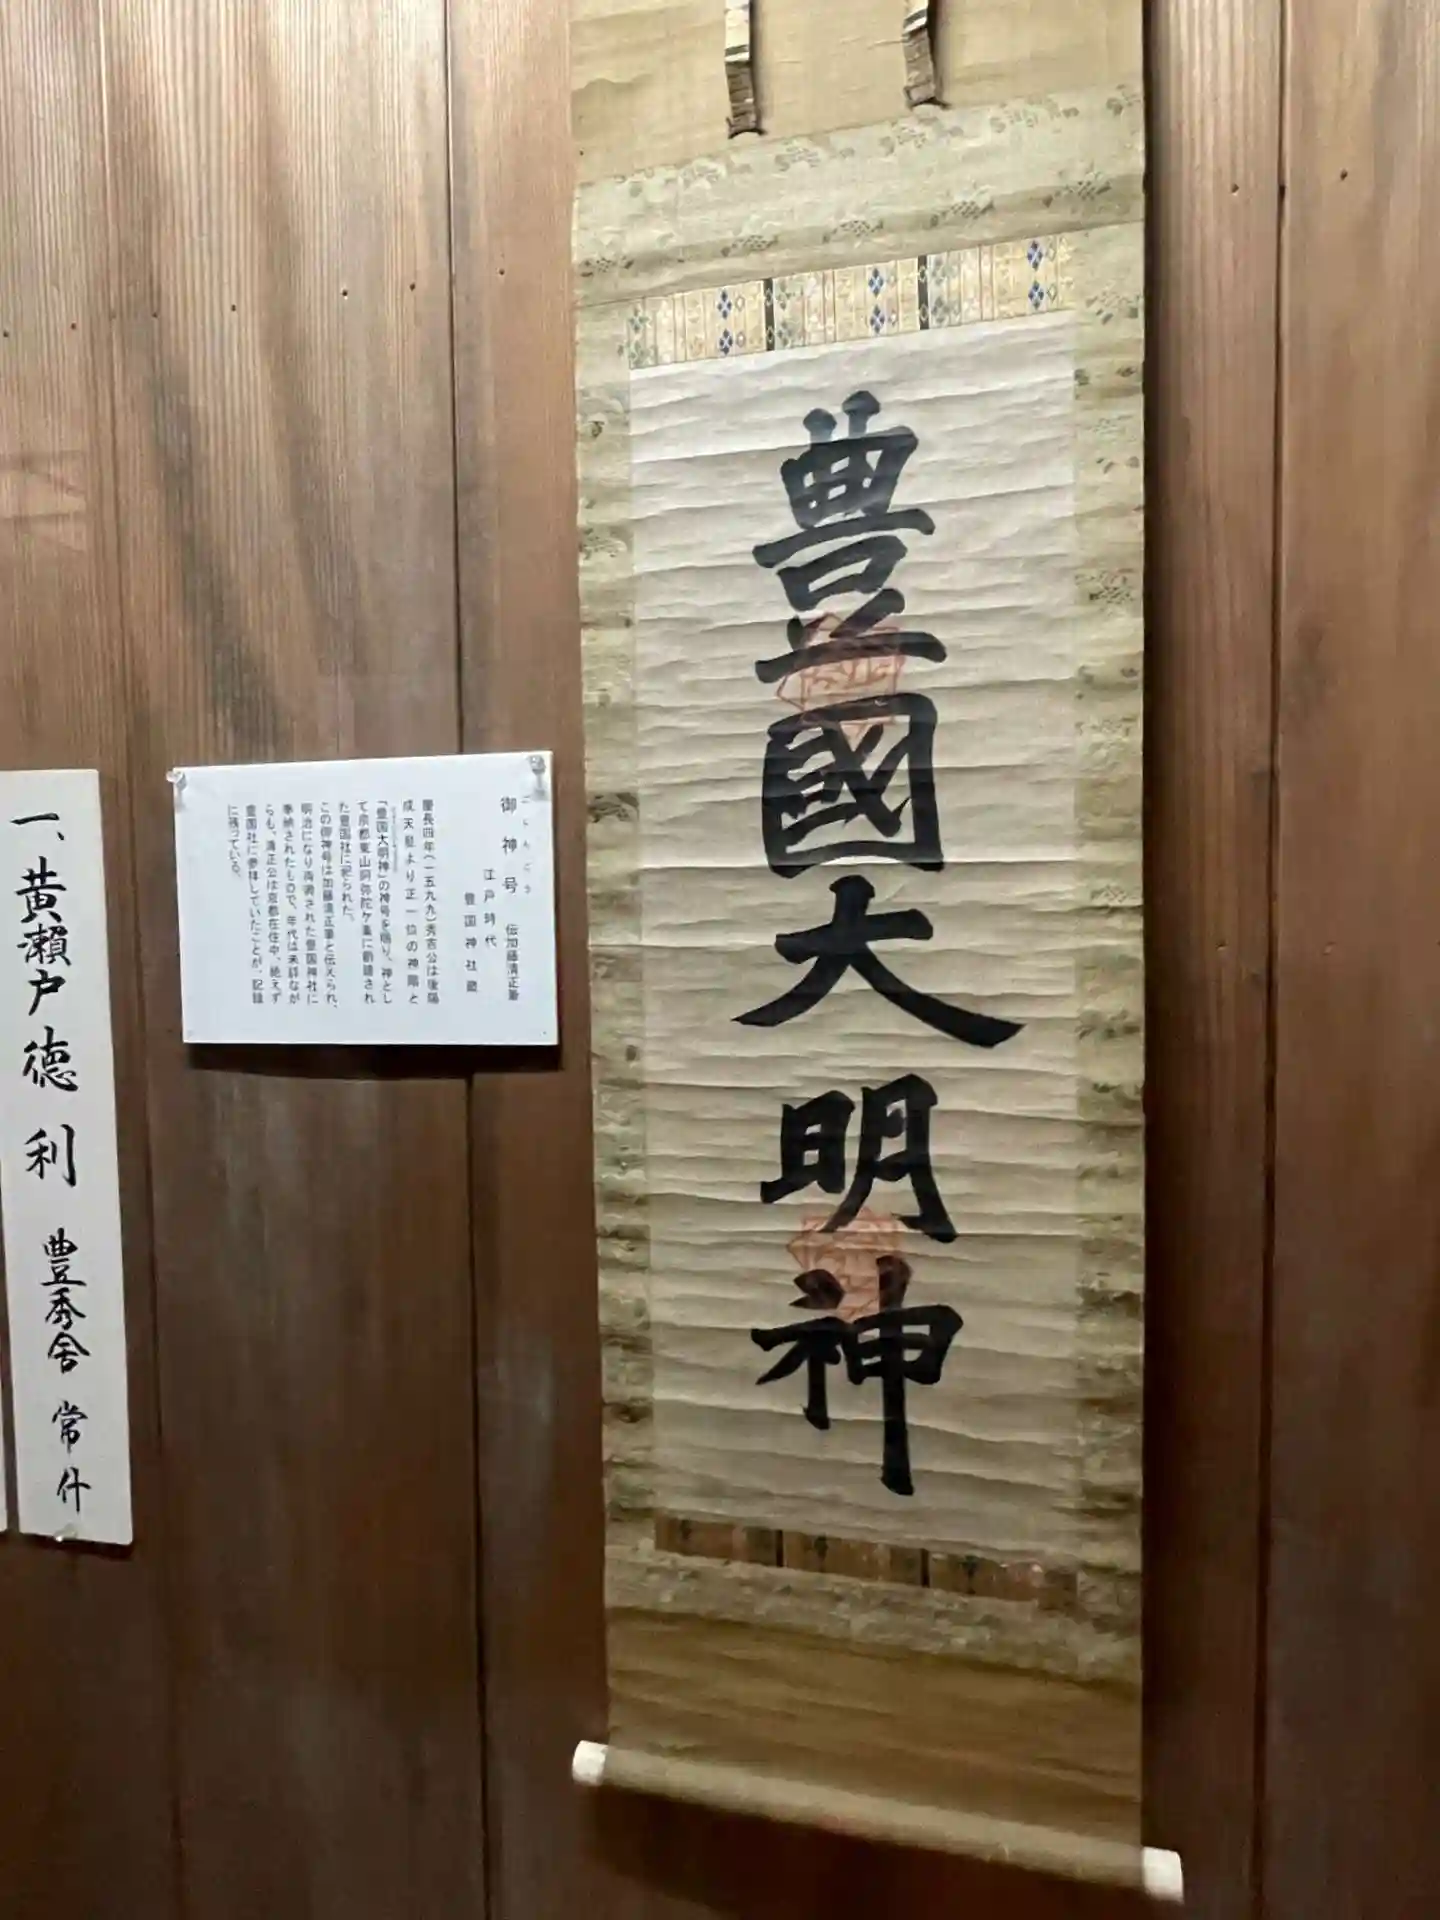 豊國大明神
御神号 伝加藤清正筆
江戸時代
豊国神社蔵
慶長四年(一五九九)秀吉公は後陽
成天皇より正一位の神階と
「豊国大明神」の神号を賜り、神とし
て京都東山阿弥陀ケ峯に創建され
た豊国社に祀られた。
この御神号は加藤清正筆と伝えられ、
明治になり再興された豊国神社に
奉納されたもので、年代は未詳なが
らも、清正公は京都在住中、絶えず
豊国社に参拝していたことが、記録
に残っている。
一、黄瀬戸徳利 豊秀舎 常什